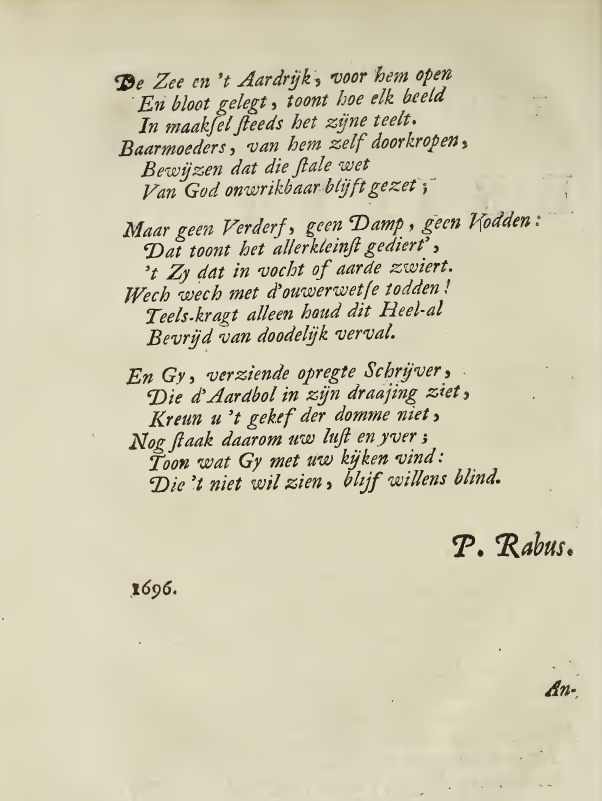 De Zee en 't Aardrijk, voor hem open
En bloot gelegt, toont hoe elk beeld
In maakſel ſteeds het zijne teelt.
Baarmoeders, van hem zelf doorkropen,
Bewijzen dat die ſtale wet
Van God onwrikbaar blijft gezet;
Maar geen Verderf, geen Damp, geen Vodden:
Dat toont het allerkleinſt gediert',
't Zy dat in vocht of aarde zwiert.
Wech wech met d'ouwerwetſe todden!
Teels-kragt alleen houd dit Heel-al
Bevrijd van doodelijk verval.
En Gy, verziende opregte Schrijver,
Die d'Aardbol in zijn draajing ziet,
Kreun u 't gekef der domme niet,
Nog ſtaak daarom uw luſt en yver;
Toon wat Gy met uw kijken vind:
Die 't niet wil zien, blijf willens blind.
P. Rabus.
1696.
An-